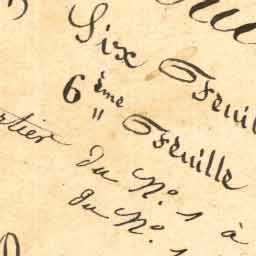 Six Feuil
6ème Feuille
rtier du No. 1 à
du No. 1